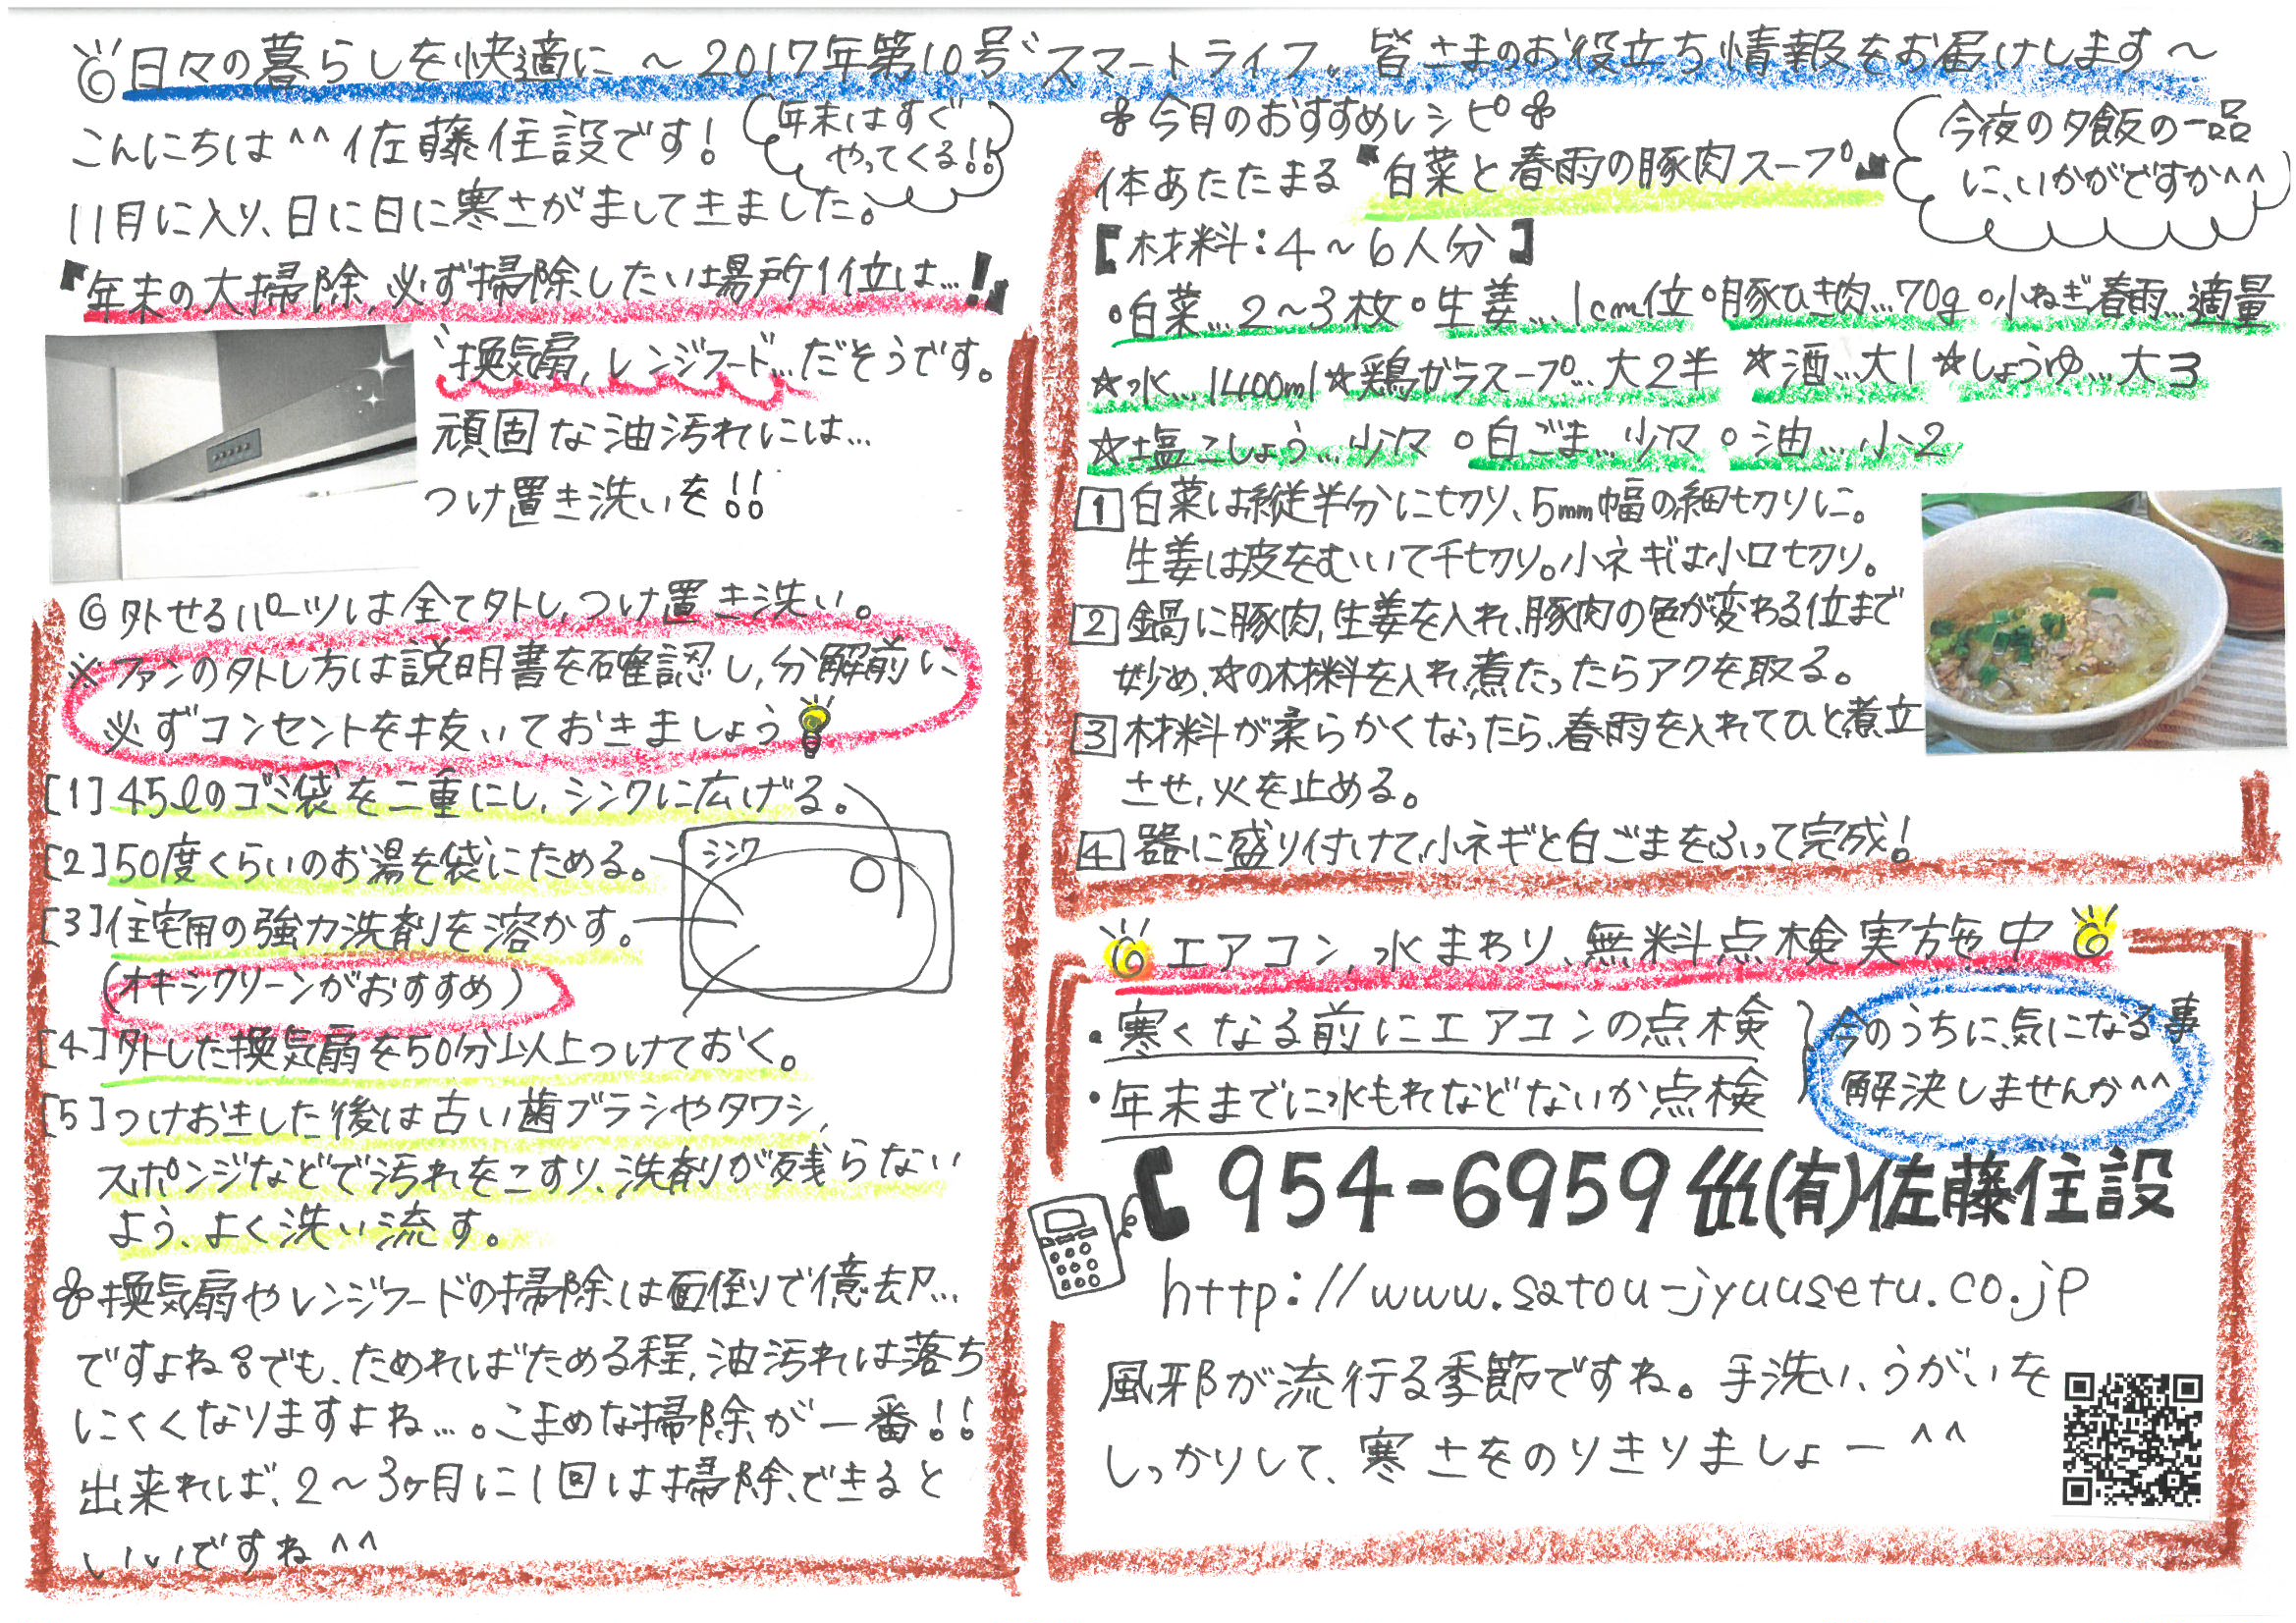 日々の暮らしを快適に ～2017年第10号〝スマートライフ〟皆さまのお役立ち情報をお届けします～
こんにちは^^佐藤住設です!
年末はすぐ
やってくる!!
11月に入り、日に日に寒さがましてきました。
『年末の大掃除、必ず掃除したい場所1位は…!』
〝換気扇、レンジフード〟…だそうです。
頑固な油汚れには…
つけ置き洗いを!!
◎外せるパーツは全て外し、つけ置き洗い。
※ファンの外し方は説明書を確認し、分解前に
必ずコンセントを抜いておきましょう
[1]45ℓのゴミ袋を二重にし、シンクに広げる。
[2]50度くらいのお湯を袋にためる。
[3]住宅用の強力洗剤を溶かす。
(オキシクリーンがおすすめ)
シンク
[4]外した換気扇を50分以上つけておく。
[5]つけおきした後は古い歯ブラシやタワシ、
スポンジなどで汚れをこすり、洗剤が残らない
よう、よく洗い流す。
換気扇やレンジフードの掃除は面倒で億劫…
ですよね。でも、ためればためる程、油汚れは落ち
にくくなりますよね…。こまめな掃除が一番!!
出来れば、2～3ヶ月に1回は掃除できると
いいですね^^
今月のおすすめレシピ
体あたたまる『白菜と春雨の豚肉スープ』
今夜の夕飯の一品
に、いかがですか^^
【材料:4～6人分】
○白菜…2～3枚○生姜…1cm位○豚ひき肉…70g○小ねぎ春雨…適量
☆水…1400ml☆鶏ガラスープ…大2半 ☆酒…大1☆しょうゆ…大3
☆塩こしょう…少々 ○白ごま…少々 ○油…小2
1 白菜は縦半分に切り、5mm幅の細切りに。
生姜は皮をむいて千切り。小ネギは小口切り。
2 鍋に豚肉、生姜を入れ、豚肉の色が変わる位まで
炒め、☆の材料を入れ、煮たったらアクを取る。
3 材料が柔らかくなったら、春雨を入れてひと煮立
させ、火を止める。
4 器に盛り付けて、小ネギと白ごまをふって完成!
エアコン、水まわり、無料点検実施中
・寒くなる前にエアコンの点検
・年末までに水もれなどないか点検
今のうちに、気になる事
解決しませんか^^
954-6959 (有)佐藤住設
http://www.satou-jyuusetu.co.jp
風邪が流行る季節ですね。手洗い、うがいを
しっかりして、寒さをのりきりましょー^^